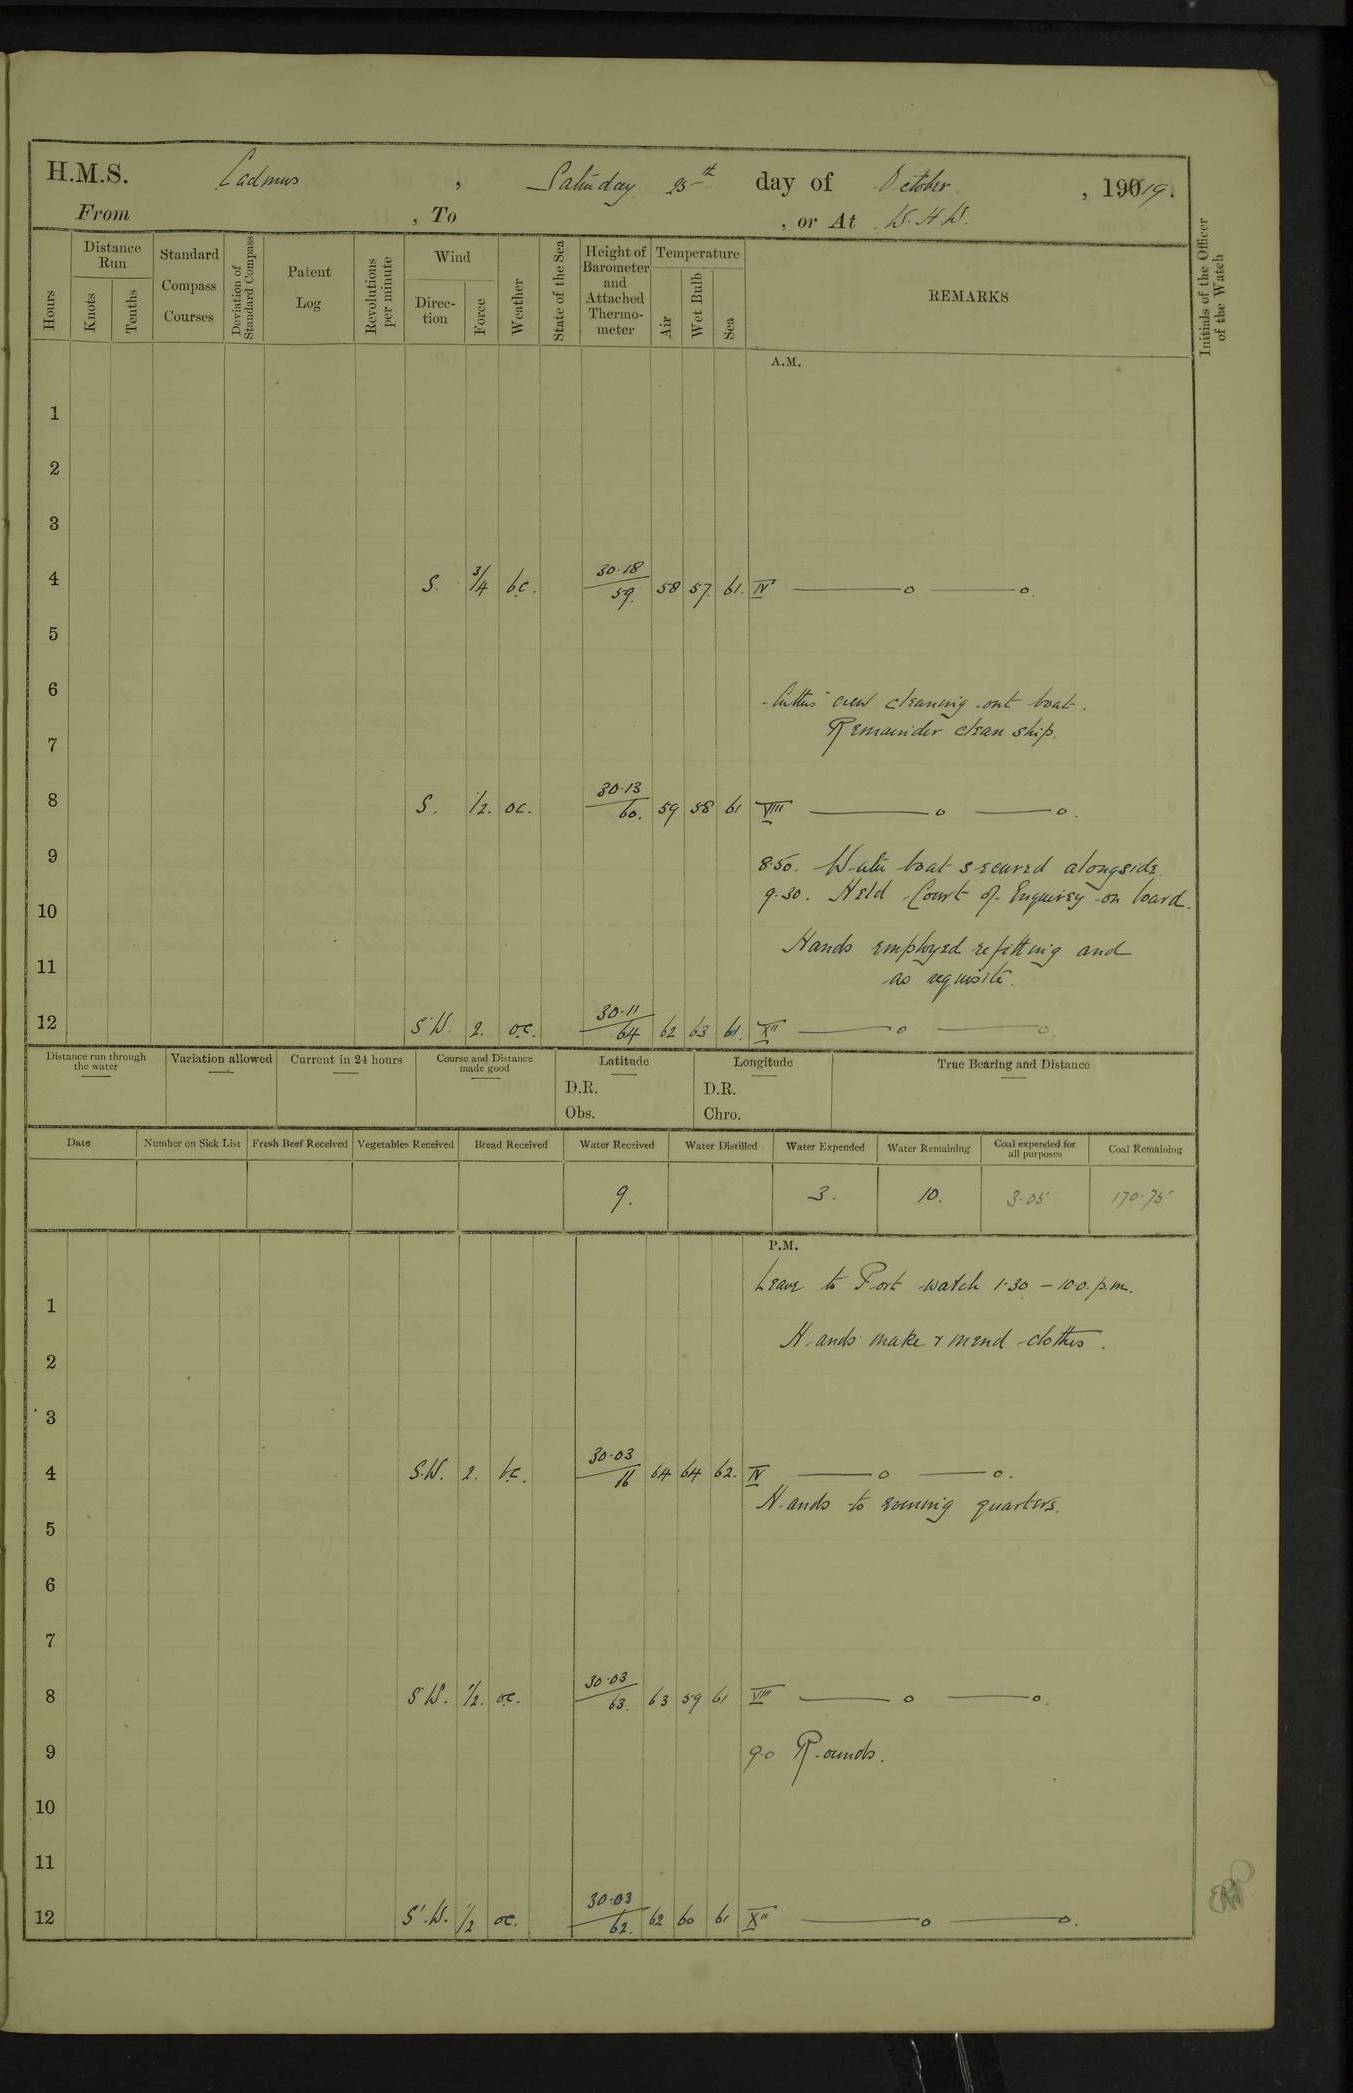 H.M.S. Cadmus, Saturday 25th day of October, 19019.
From , To , or At W.H.W.
Hours Distance Run Knots Tenths Standard Compass Courses Deviation of Standard Compass Patent Log Revolutions per minute Wind Direction Force Weather State of the Sea Height of Barometer and Attached Thermometer Temperature Air Wet Bulb Sea REMARKS Initials of the Officer of the Watch
A.M.
1
2
3
4 S. 3/4 bc. 30.18/59. 58 57. 61. IV
5
6
Cutters crew cleaning out boat.
Remainder clean ship.
7
8 S. 1/2. oc. 30.13/60. 59 58 61 VIII
9 8.50. Water boat secured alongside.
9.30. Held Court of Enquirey on board.
10
Hands employed refitting and
11 as requisite.
12 S.W. 2. oc. 30.11/64 62 63 61. XII
Distance run through the water Variation allowed Current in 24 hours Course and Distance made good Latitude Longitude True Bearing and Distance
D.R. D.R.
Obs. Chro.
Date Number on Sick List Fresh Beef Received Vegetables Received Bread Received Water Received Water Distilled Water Expended Water Remaining Coal expended for all purposes Coal Remaining
9. 3. 10. 3.05 170.75
P.M.
Leave to Port watch 1.30 – 10.0. p.m.
1
Hands make & mend clothes.
2
3
4 S.W. 2. bc. 30.03/16 64 64 62. IV
Hands to evening quarters.
5
6
7
8 S.W. 1/2. oc. 30.03/63. 63 59 61 VIII
9 9.0 Rounds.
10
11
12 S.W. 1/2 oc. 30.03/62. 62 60 61 XII